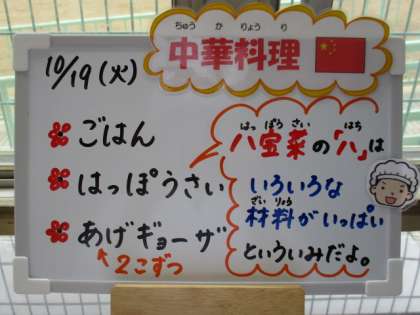 ちゅうかりょうり
中華料理
10/19(火)
ごはん
はっぽうさい
あげギョーザ
2こずつ
はっぽうさい はち
八宝菜の「八」は
いろいろな
ざいりょう
材料がいっぱい
といういみだよ。